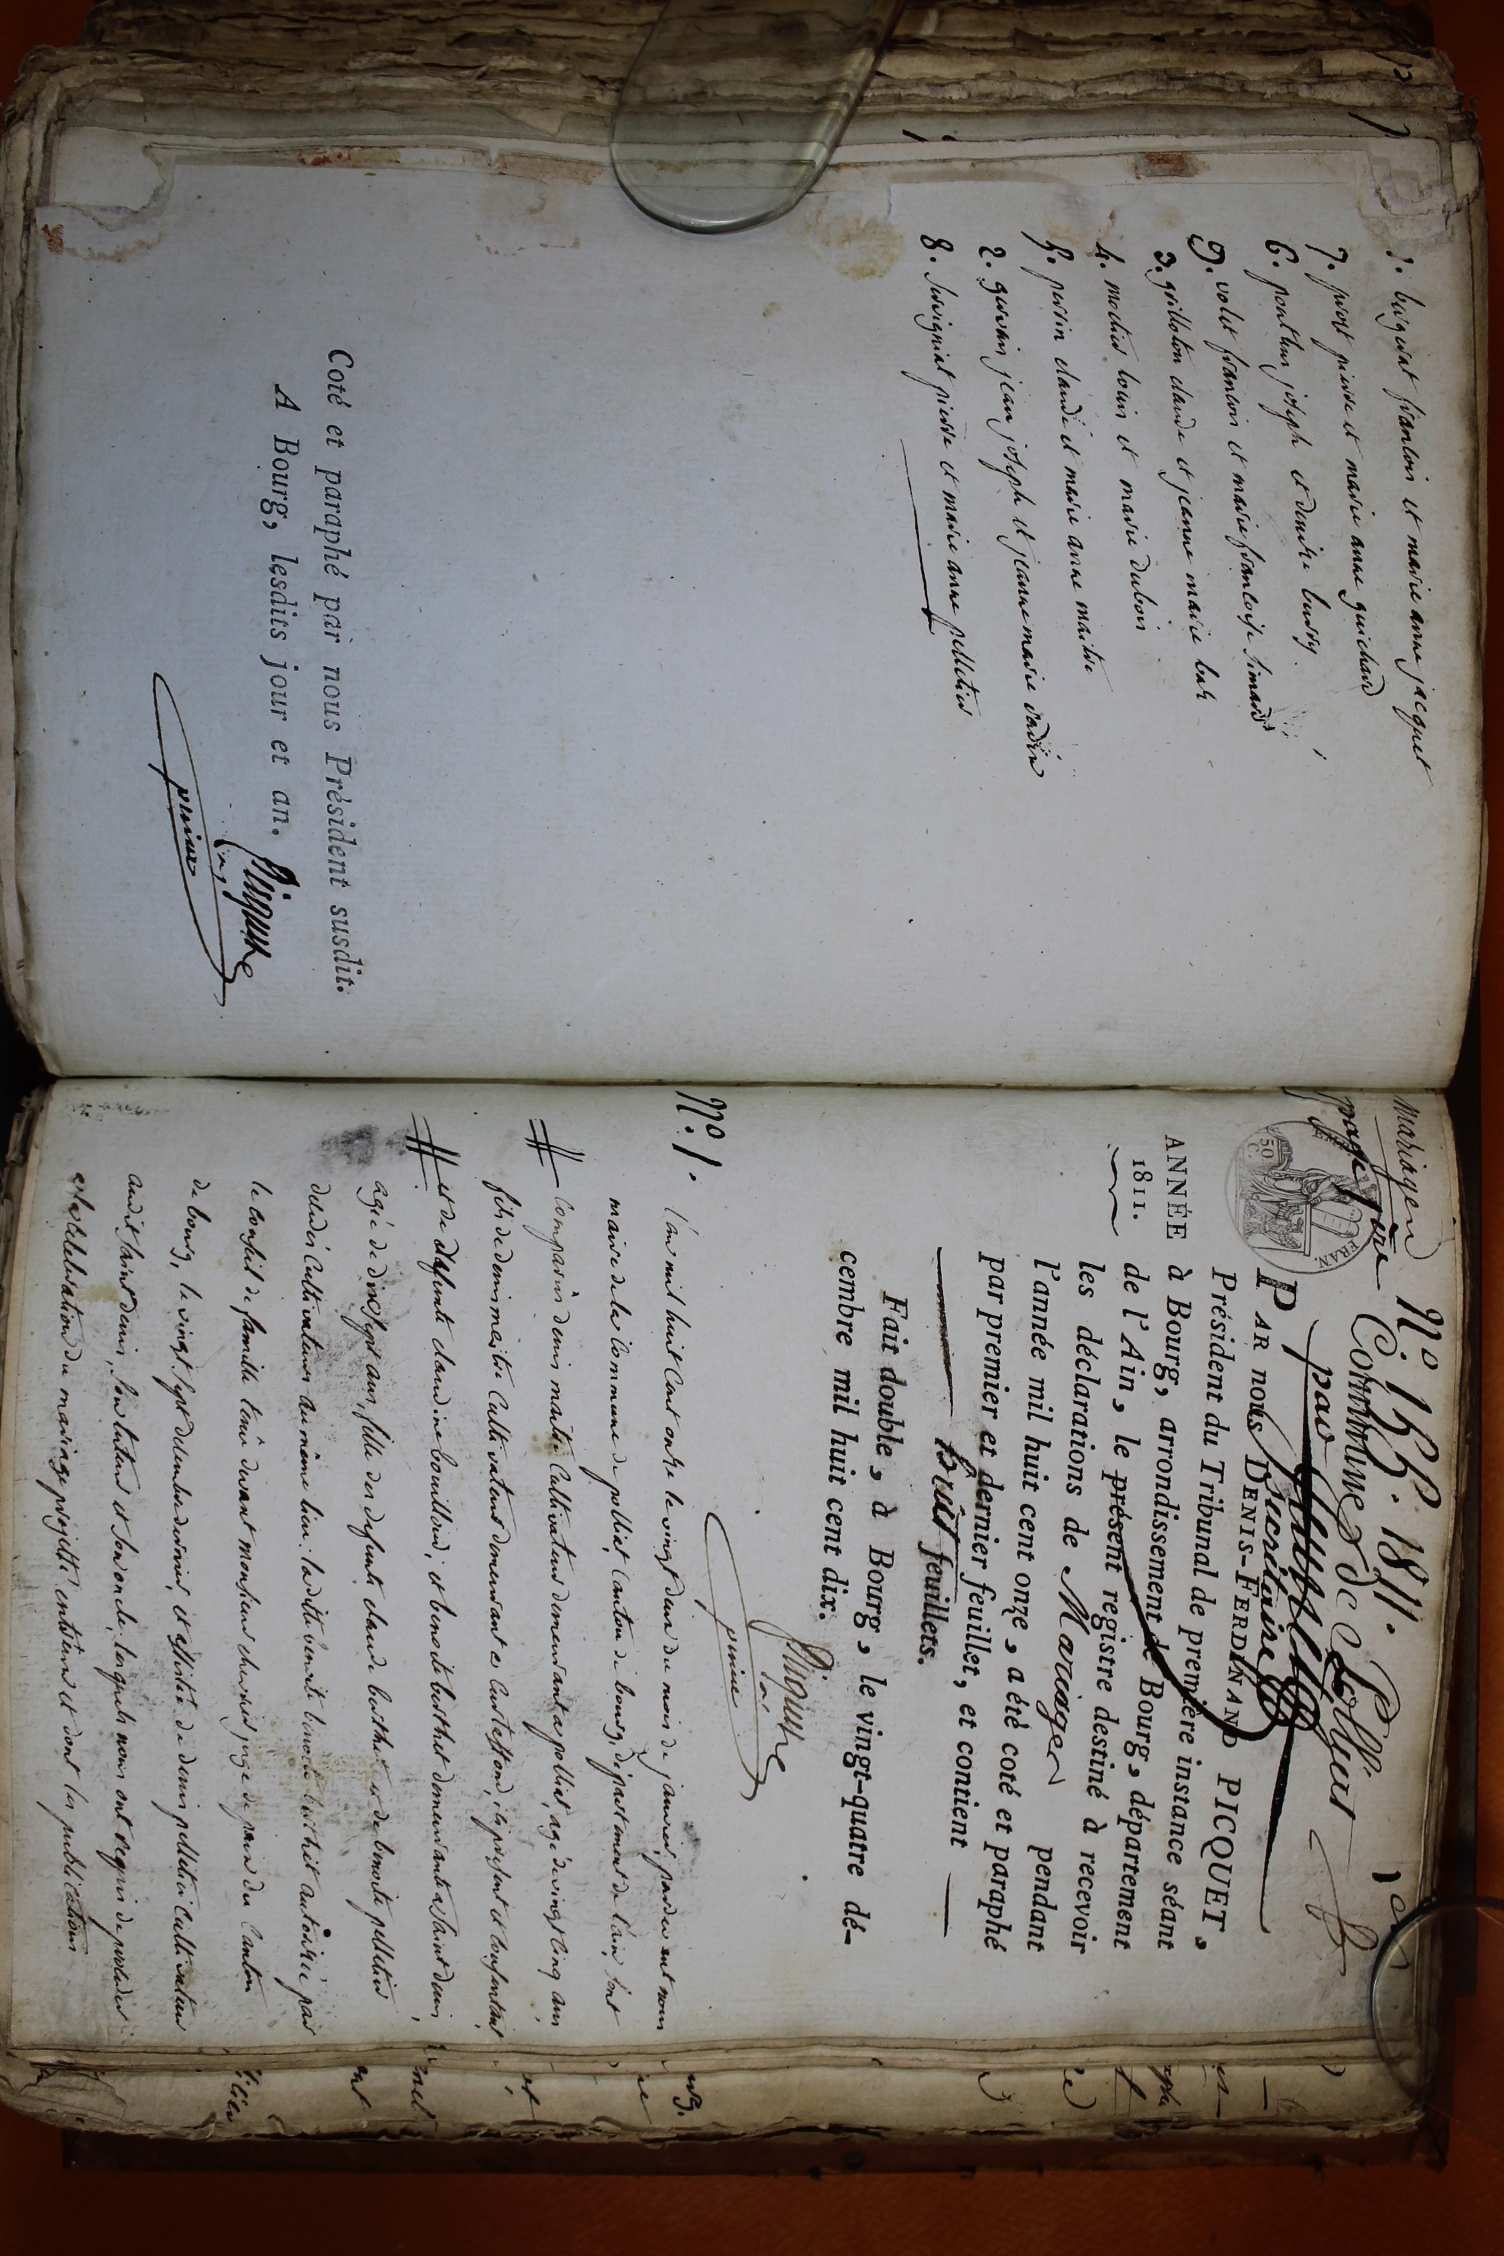 1. buiguet francois et marie anne jacquet
7. pivost pierre et marie anne guichard
6. ponthus joseph et denise bussy
9. volet francois et marie francoise simard
3. grillotton claude et jeanne marie
4. mochin louis et marie dubois
5. perrin claude et marie anne maitre
2. gervais jean joseph et jeanne marie
8. pierre et marie anne pelletier
Coté et paraphé par nous Président susdit.
A Bourg, lesdits jour et an.
Picquet
mariages
page 1ere
N° 155. 1811.
Commune de Polliat
ANNÉE
1811.
PAR nous DENIS-FERDINAND PICQUET,
Président du Tribunal de première instance séant
à Bourg, arrondissement de Bourg, département
de l'Ain, le présent registre destiné à recevoir
les déclarations de Mariages pendant
l'année mil huit cent onze, a été coté et paraphé
par premier et dernier feuillet, et contient
huit feuillets.
Fait double, à Bourg, le vingt-quatre dé-
cembre mil huit cent dix.
Picquet
N° 1.
L'an mil huit cent onze le vingt deux du mois de janvier, pardevant nous
maire de la commune de polliat, canton de bourg, département de l'ain, sont
comparus denis maitre cultivateur demeurant a polliat, agé de vingt cinq ans
fils de denis maitre cultivateur demeurant a curtafond, ici présent et consentant
et de défunte claudine bouilloud; et benoite berthet demeurante a saint denis,
agée de dix sept ans, fille des defunts claude berthet et de benoite pelletier
cultivateurs au même lieu: la ditte benoite berthet autorisée par
le conseil de famille tenu devant monsieur juge de paix du canton
de bourg, le vingt sept décembre dernier, et assistée de denis pelletier cultivateur
audit saint denis, son tuteur et son oncle; lesquels nous ont requis de proceder
a la celebration du mariage projetté entr'eux et dont les publications